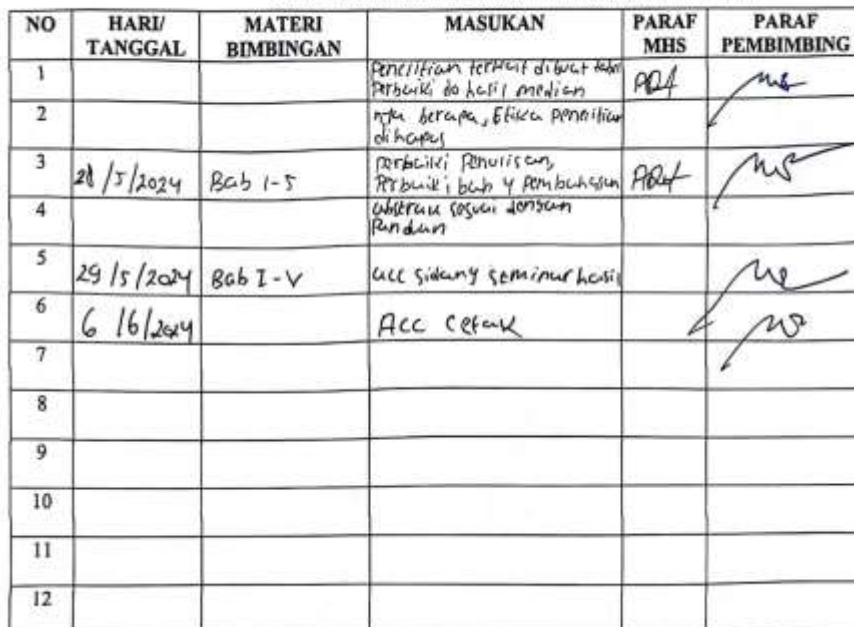 NO HARI/ TANGGAL MATERI BIMBINGAN MASUKAN PARAF MHS PARAF PEMBIMBING
1 Penelitian terkait dibuat tabel
Perbaiki do hasil median
2 nya berapa, Etika penelitian
dihapus
3 28/5/2024 Bab 1-5 perbaiki Penulisan,
Perbaiki bab 4 pembahasan
4 abstrak sesuai dengan
Panduan
5 29/5/2024 Bab I-V acc sidang seminar hasil
6 6/6/2024 Acc cetak
7
8
9
10
11
12